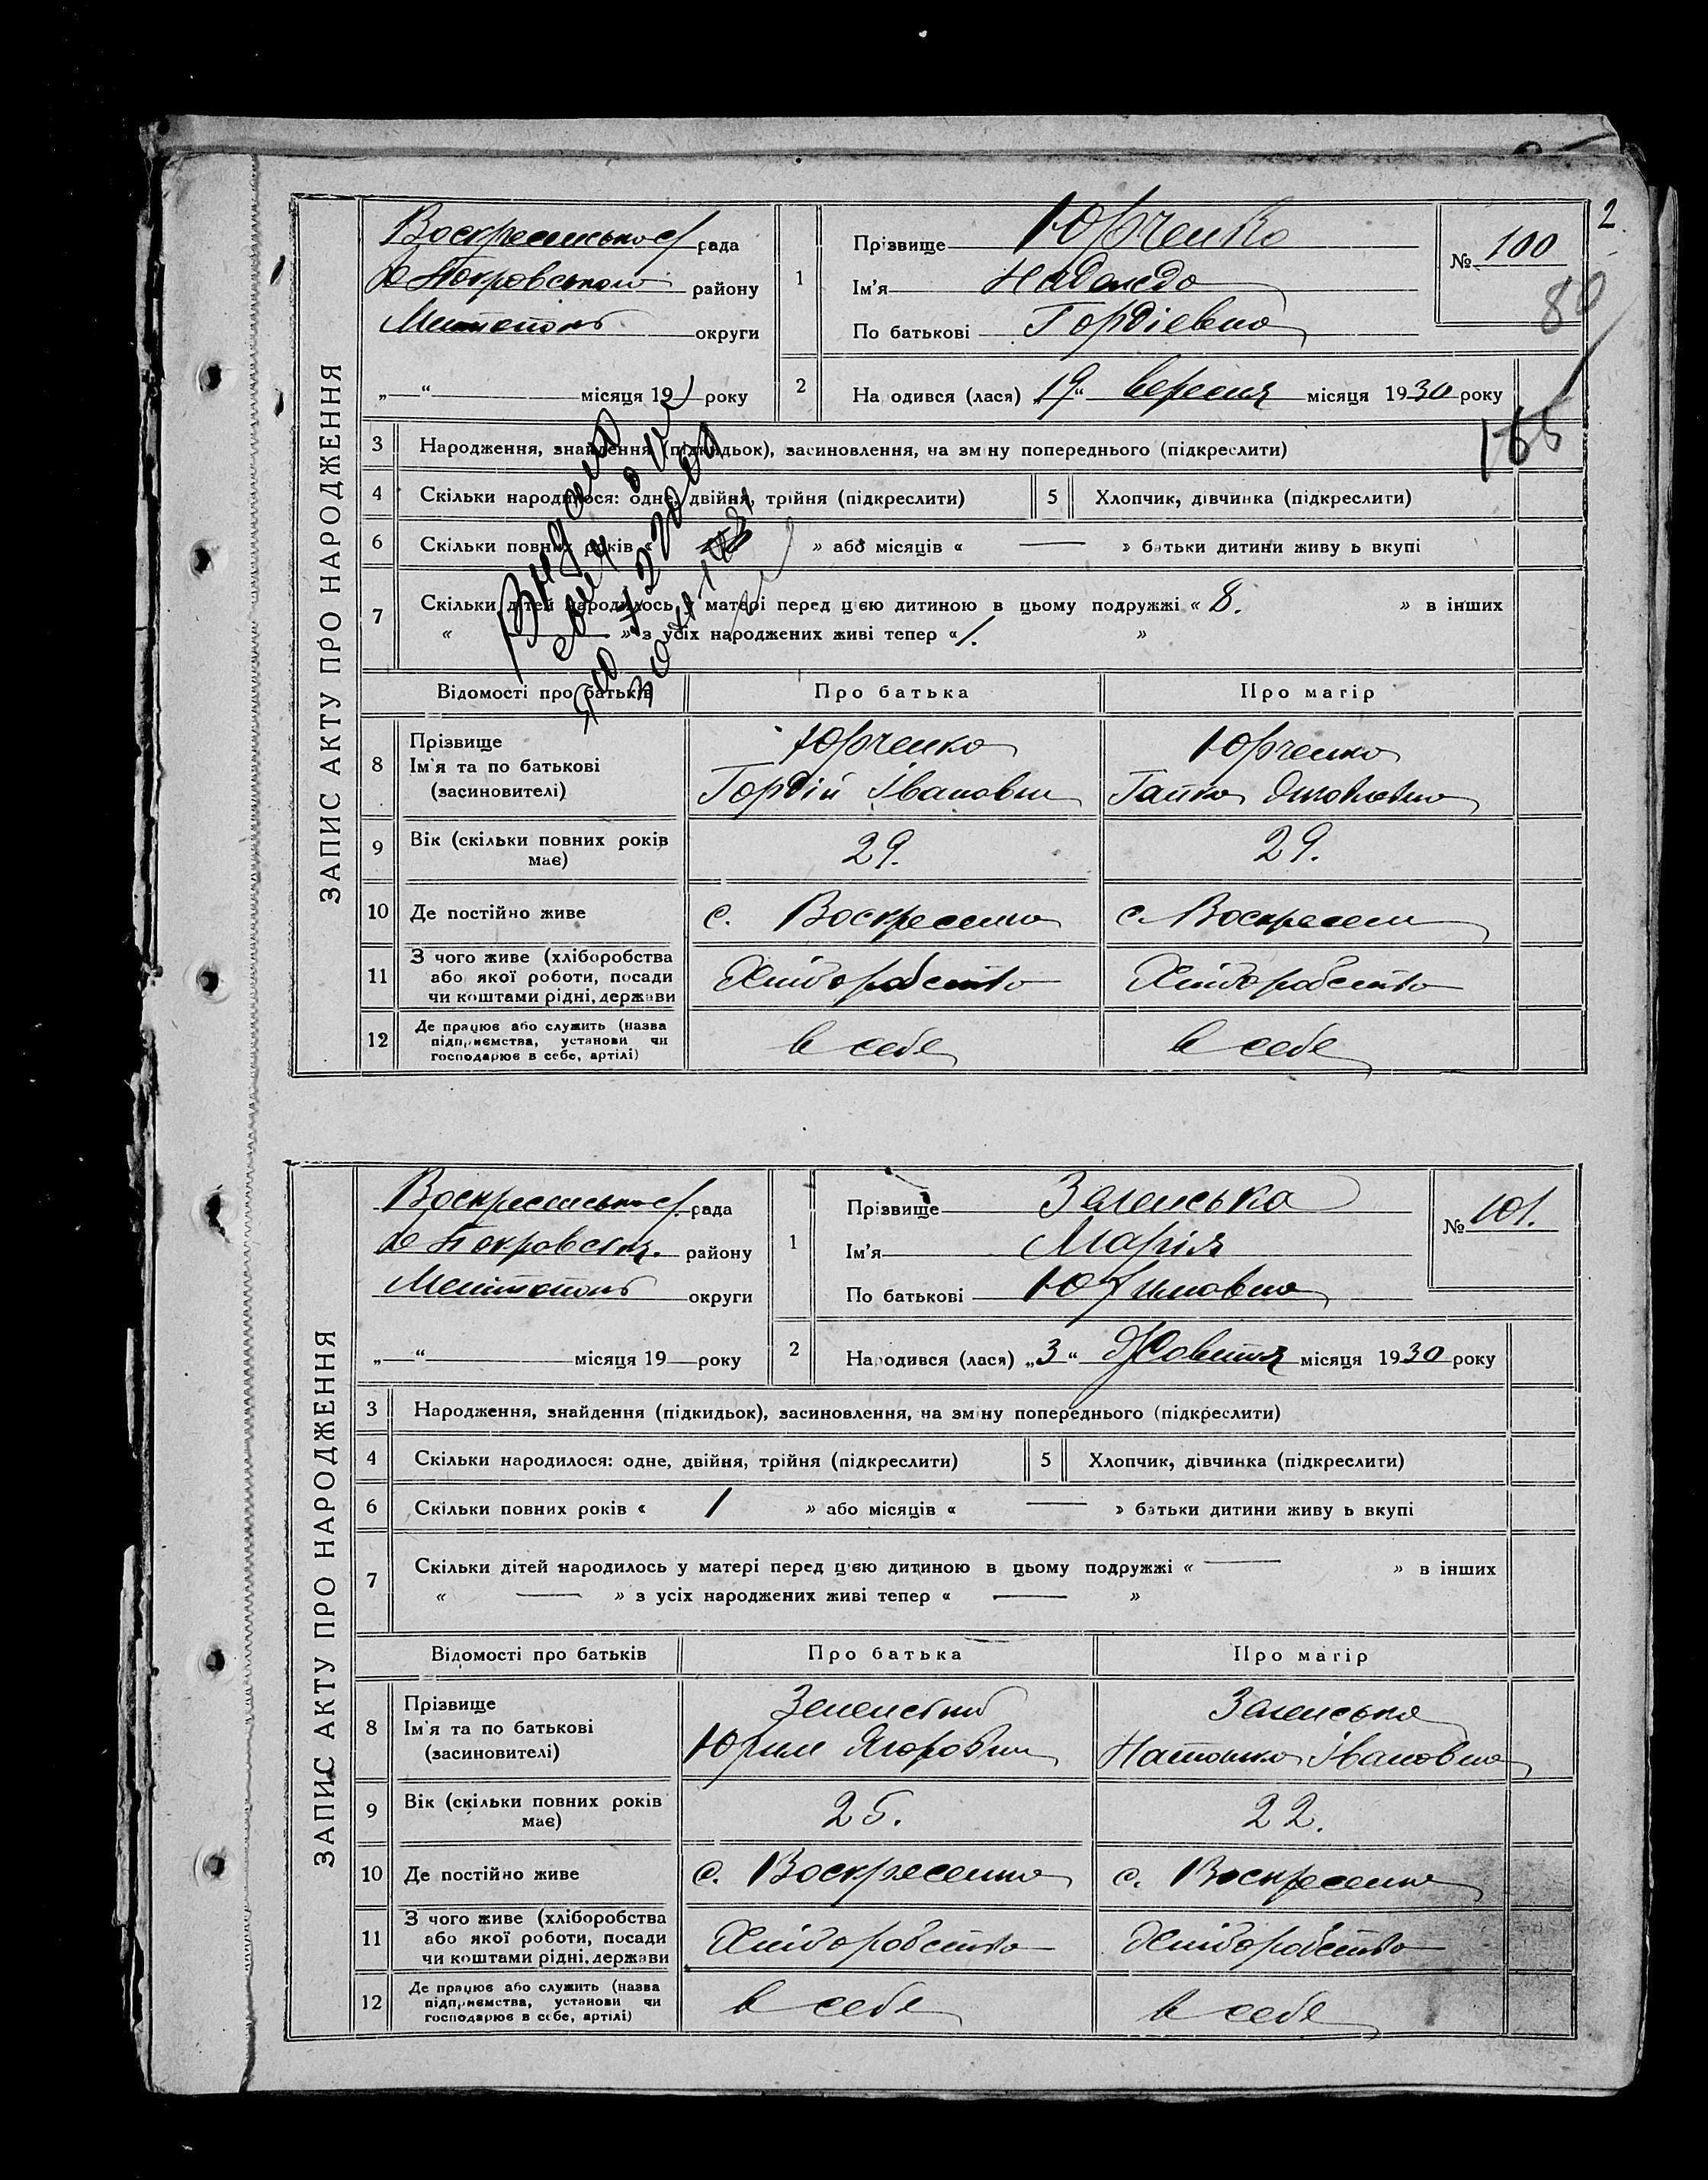 2
ЗАПИС АКТУ ПРО НАРОДЖЕННЯ
рада
району
округи
„—“ місяця 19 року
1
Прізвище Юрченко
Ім'я Надежда
По батькові Гордіевна
№ 100
80
2
На одився (лася) „19“ вересня місяця 1930 року
165
3 Народження, знайдення (підкидьок), засиновлення, на зм ну попереднього (підкреслити)
4 Скільки народилося: одне, двійня, трійня (підкреслити) 5 Хлопчик, дівчинка (підкреслити)
6 Скільки повних років « » або місяців « — » батьки дитини живу ь вкупі
7 Скільки дітей народилось у матері перед цією дитиною в цьому подружжі « 8. » в інших
« — » з усіх народжених живі тепер « 1. »
Відомості про батьків Про батька Про матір
8 Прізвище
Ім'я та по батькові
(засиновителі)
Юрченко
Гордій Іванович
Юрченко
Ганна
9 Вік (скільки повних років
має)
29. 29.
10 Де постійно живе с. Воскресенка с. Воскресен
11 З чого живе (хліборобства
або якої роботи, посади
чи коштами рідні, держави
Хліборобство Хліборобство
12 Де працює або служить (назва
підприємства, установи чи
господарює в себе, артілі)
в себе в себе
ЗАПИС АКТУ ПРО НАРОДЖЕННЯ
рада
району
округи
„—“ місяця 19 — року
1
Прізвище Зеленська
Ім'я Марія
По батькові Юхимовна
№ 101.
2
Народився (лася) „3“ Жовтня місяця 1930 року
3 Народження, знайдення (підкидьок), засиновлення, на зм ну попереднього (підкреслити)
4 Скільки народилося: одне, двійня, трійня (підкреслити) 5 Хлопчик, дівчинка (підкреслити)
6 Скільки повних років « 1 » або місяців « — » батьки дитини живу ь вкупі
7 Скільки дітей народилось у матері перед цією дитиною в цьому подружжі « — » в інших
« — » з усіх народжених живі тепер « — »
Відомості про батьків Про батька Про матір
8 Прізвище
Ім'я та по батькові
(засиновителі)
Зеленський
Юхим
Зеленська
Наталка Івановна
9 Вік (скільки повних років
має)
25. 22.
10 Де постійно живе с. Воскресенка с. Воскресенка
11 З чого живе (хліборобства
або якої роботи, посади
чи коштами рідні, держави
Хліборобство Хліборобство
12 Де працює або служить (назва
підприємства, установи чи
господарює в себе, артілі)
в себе в себе